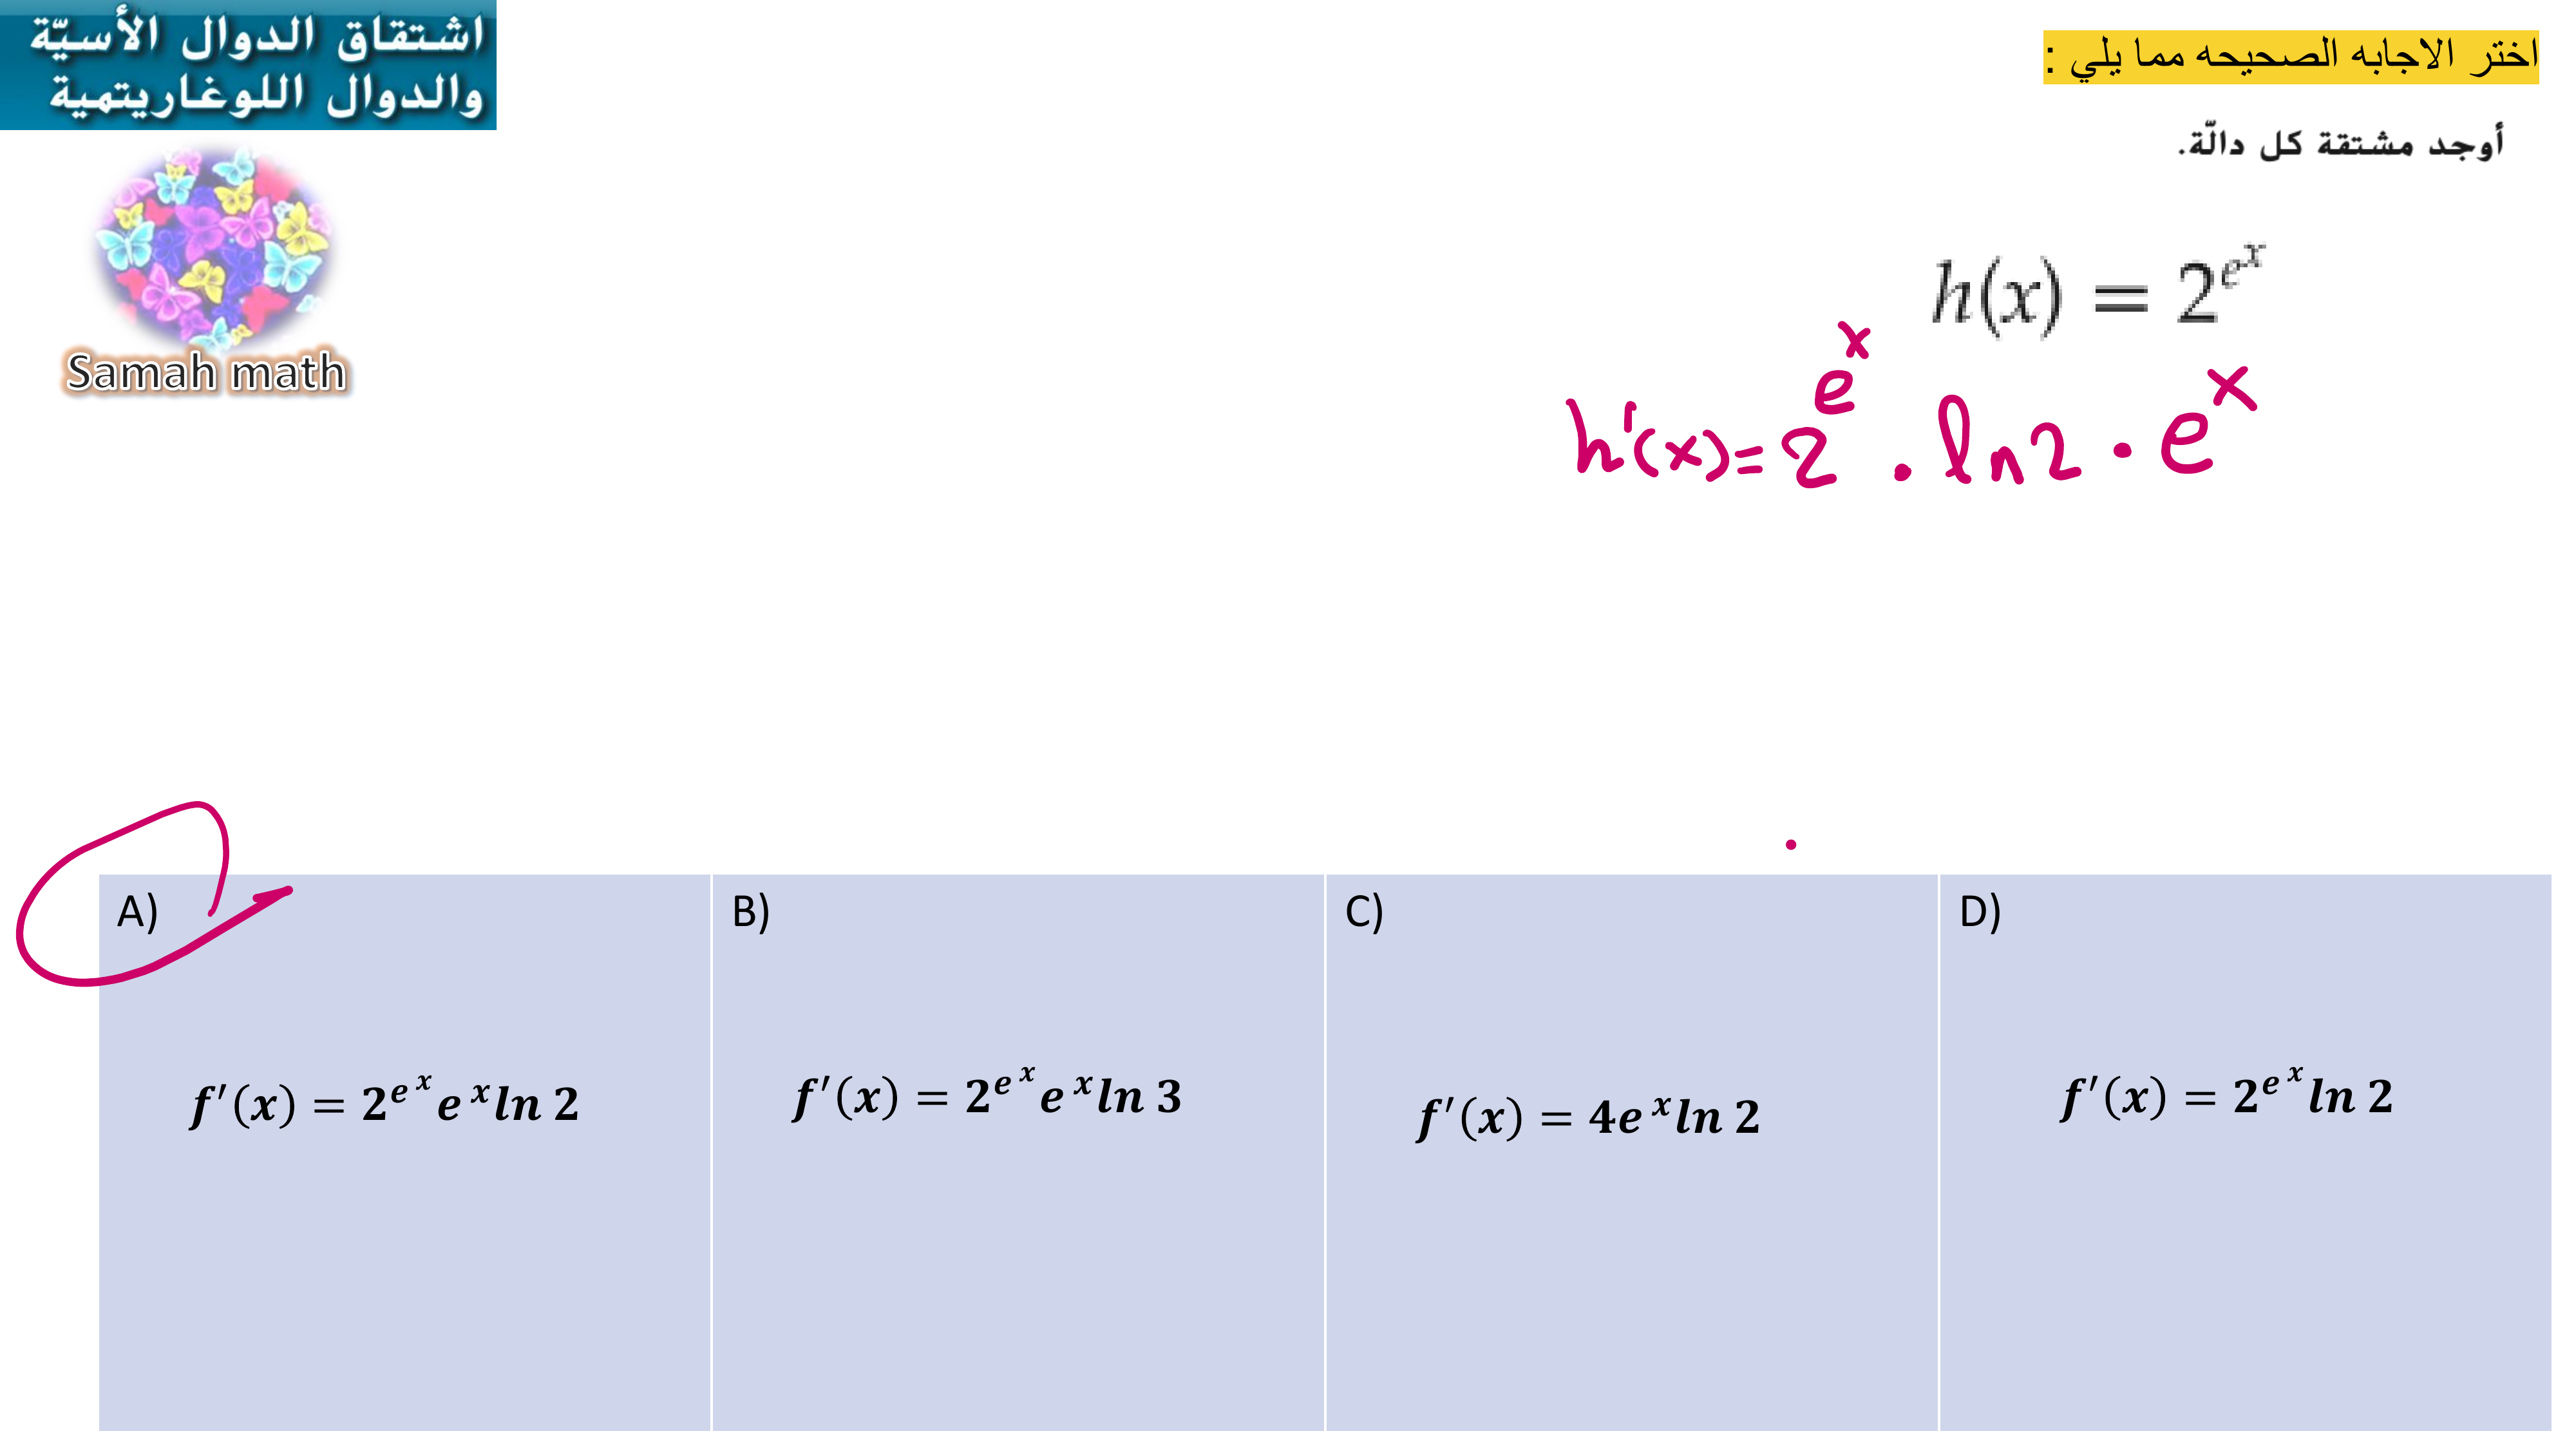 اشتقاق الدوال الأسيّة
والدوال اللوغاريتمية
Samah math
اختر الاجابه الصحيحه مما يلي :
أوجد مشتقة كل دالّة.
h(x) = 2^{e^x}
h'(x) = 2^{e^x} · ln2 · e^x
A)
f′(x) = 2^{e^x} e^x ln 2
B)
f′(x) = 2^{e^x} e^x ln 3
C)
f′(x) = 4e^x ln 2
D)
f′(x) = 2^{e^x} ln 2